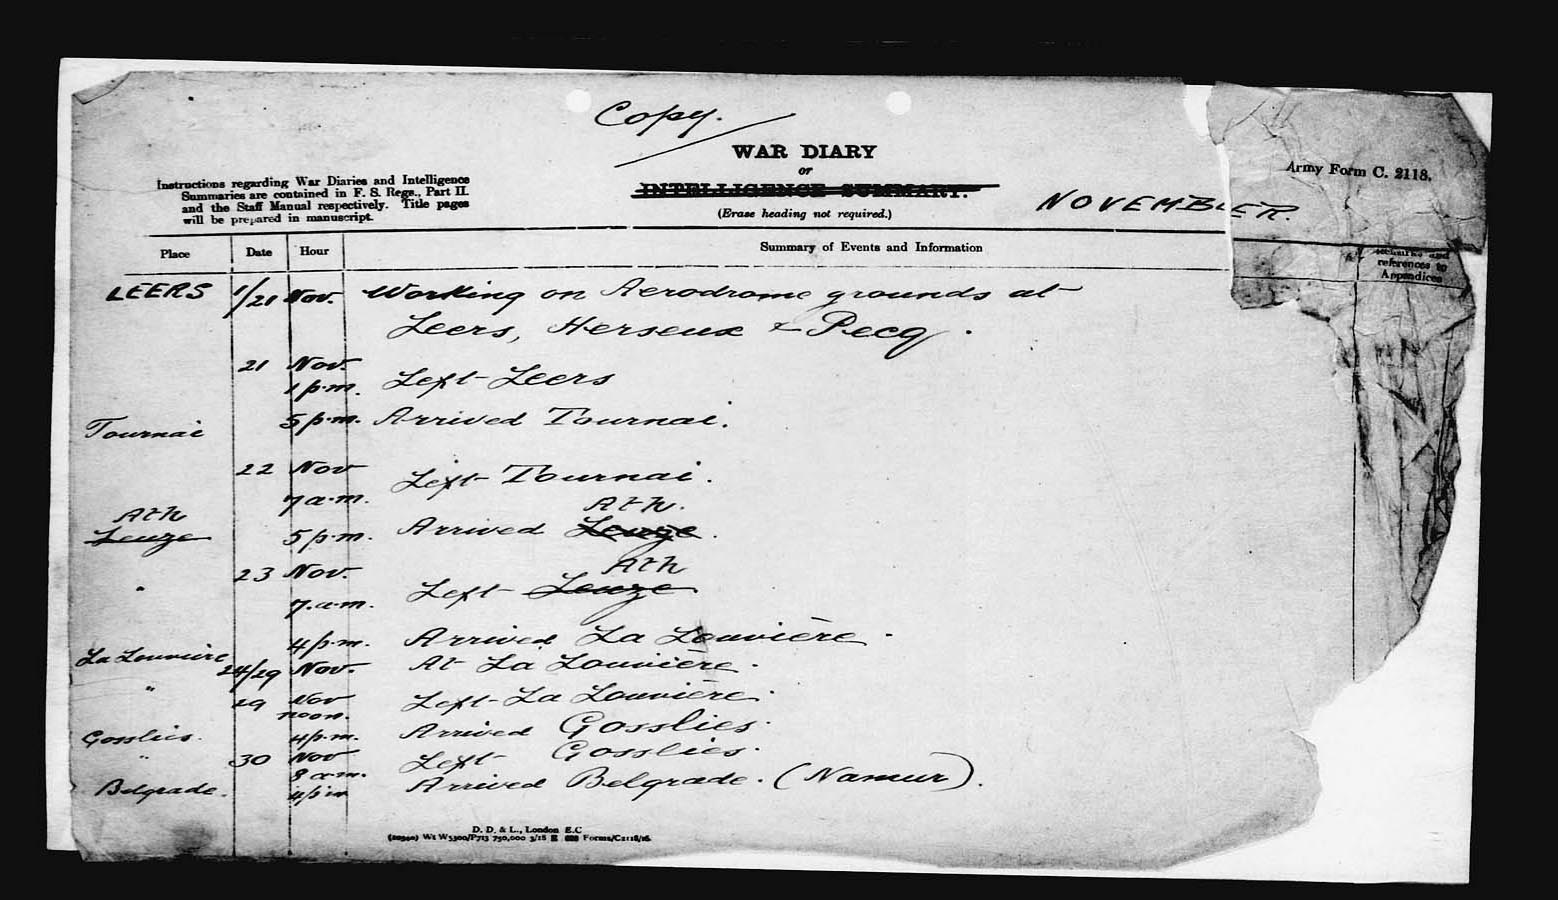 Copy.
WAR DIARY
or
INTELLIGENCE SUMMARY.
(Erase heading not required.)
Army Form C. 2118.
NOVEMBER.
Instructions regarding War Diaries and Intelligence
Summaries are contained in F. S. Regs., Part II.
and the Staff Manual respectively. Title pages
will be prepared in manuscript.
Place Date Hour Summary of Events and Information
Remarks and
references to
Appendices
LEERS 1/21 Nov. Working on Aerodrome grounds at
Leers, Herseux & Pecq.
21 Nov.
1 p.m. Left Leers
Tournai 5 p.m. Arrived Tournai.
22 Nov
7 a.m. Left Tournai.
Ath Ath.
Leuze 5 p.m. Arrived Leuze.
23 Nov. Ath
" 7. a.m. Left Leuze
4 p.m. Arrived La Louvière.
La Louvière 24/29 Nov. At La Louvière.
" 29 Nov
noon. Left La Louvière.
Gosslies. 4 p.m. Arrived Gosslies.
" 30 Nov
8 a.m. Left Gosslies.
Belgrade. 4 p.m Arrived Belgrade. (Namur).
D. D. & L., London E.C
Wt W5300/P713 750,000 3/18 E Forms/C2118/16.